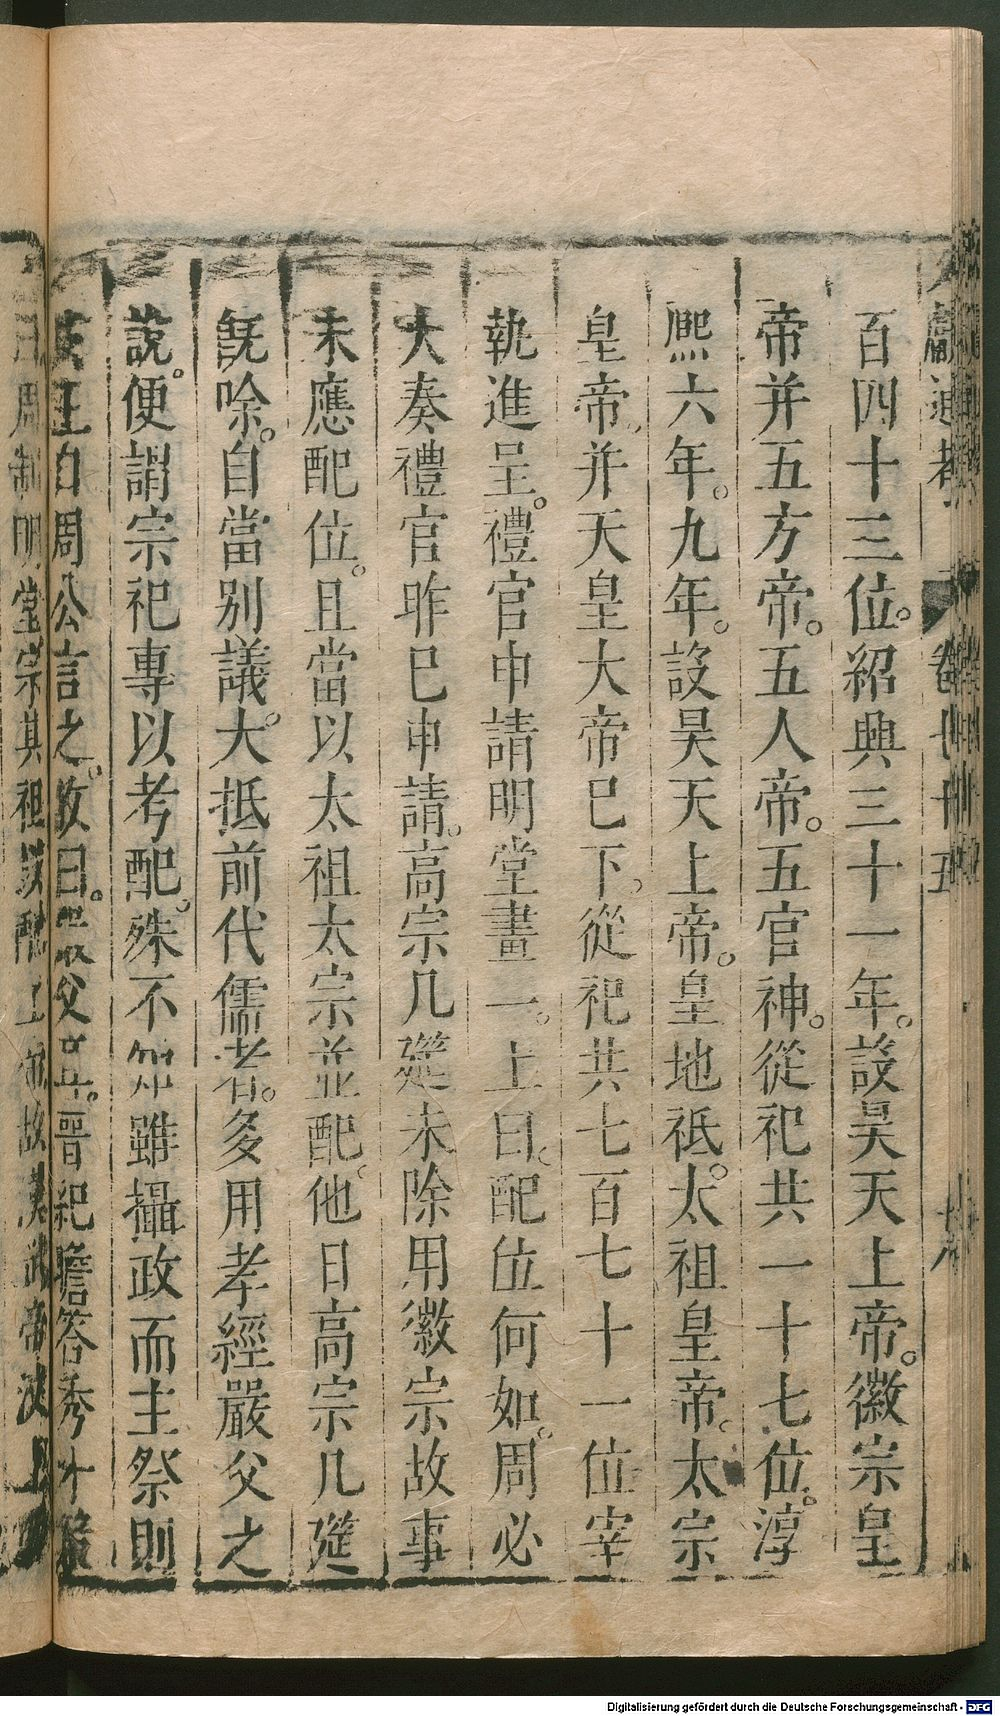 百四十三位。紹興三十一年。設昊天上帝。徽宗皇
帝并五方帝。五人帝。五官神。從祀共一十七位。淳
熈六年。九年。設昊天上帝。皇地祗。太祖皇帝。太宗
皇帝、并天皇大帝巳下。從祀共七百七十一位宰
執進呈。禮官申請明堂畫一。上曰。配位何如。周必
大奏禮官昨巳申請。高宗几筵未除用徽宗故事
未應配位。且當以太祖太宗並配。他日高宗几筵
旣除。自當别議。大抵前代儒者。多用孝經嚴父之
說。便謂宗祀專以考配。殊不知雖攝政而主祭則
王自周公言之。故曰。嚴父耳。晋紀瞻答秀才策
周制明堂宗其祖以配上帝故漢武帝汶上
卷七十五
Digitalisierung gefördert durch die Deutsche Forschungsgemeinschaft - DFG